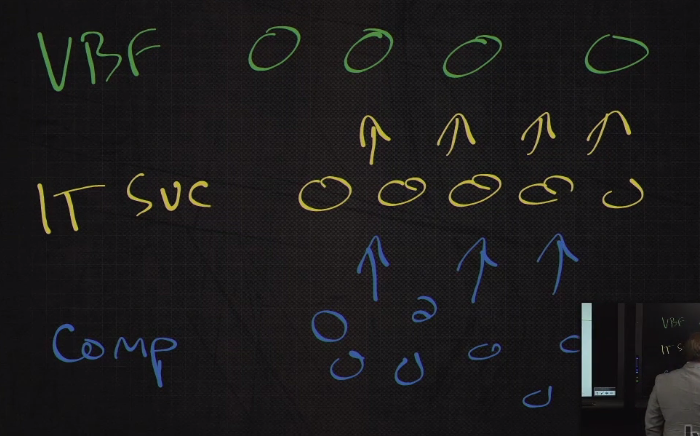 VBF
IT SVC
Comp
VBF
IT S